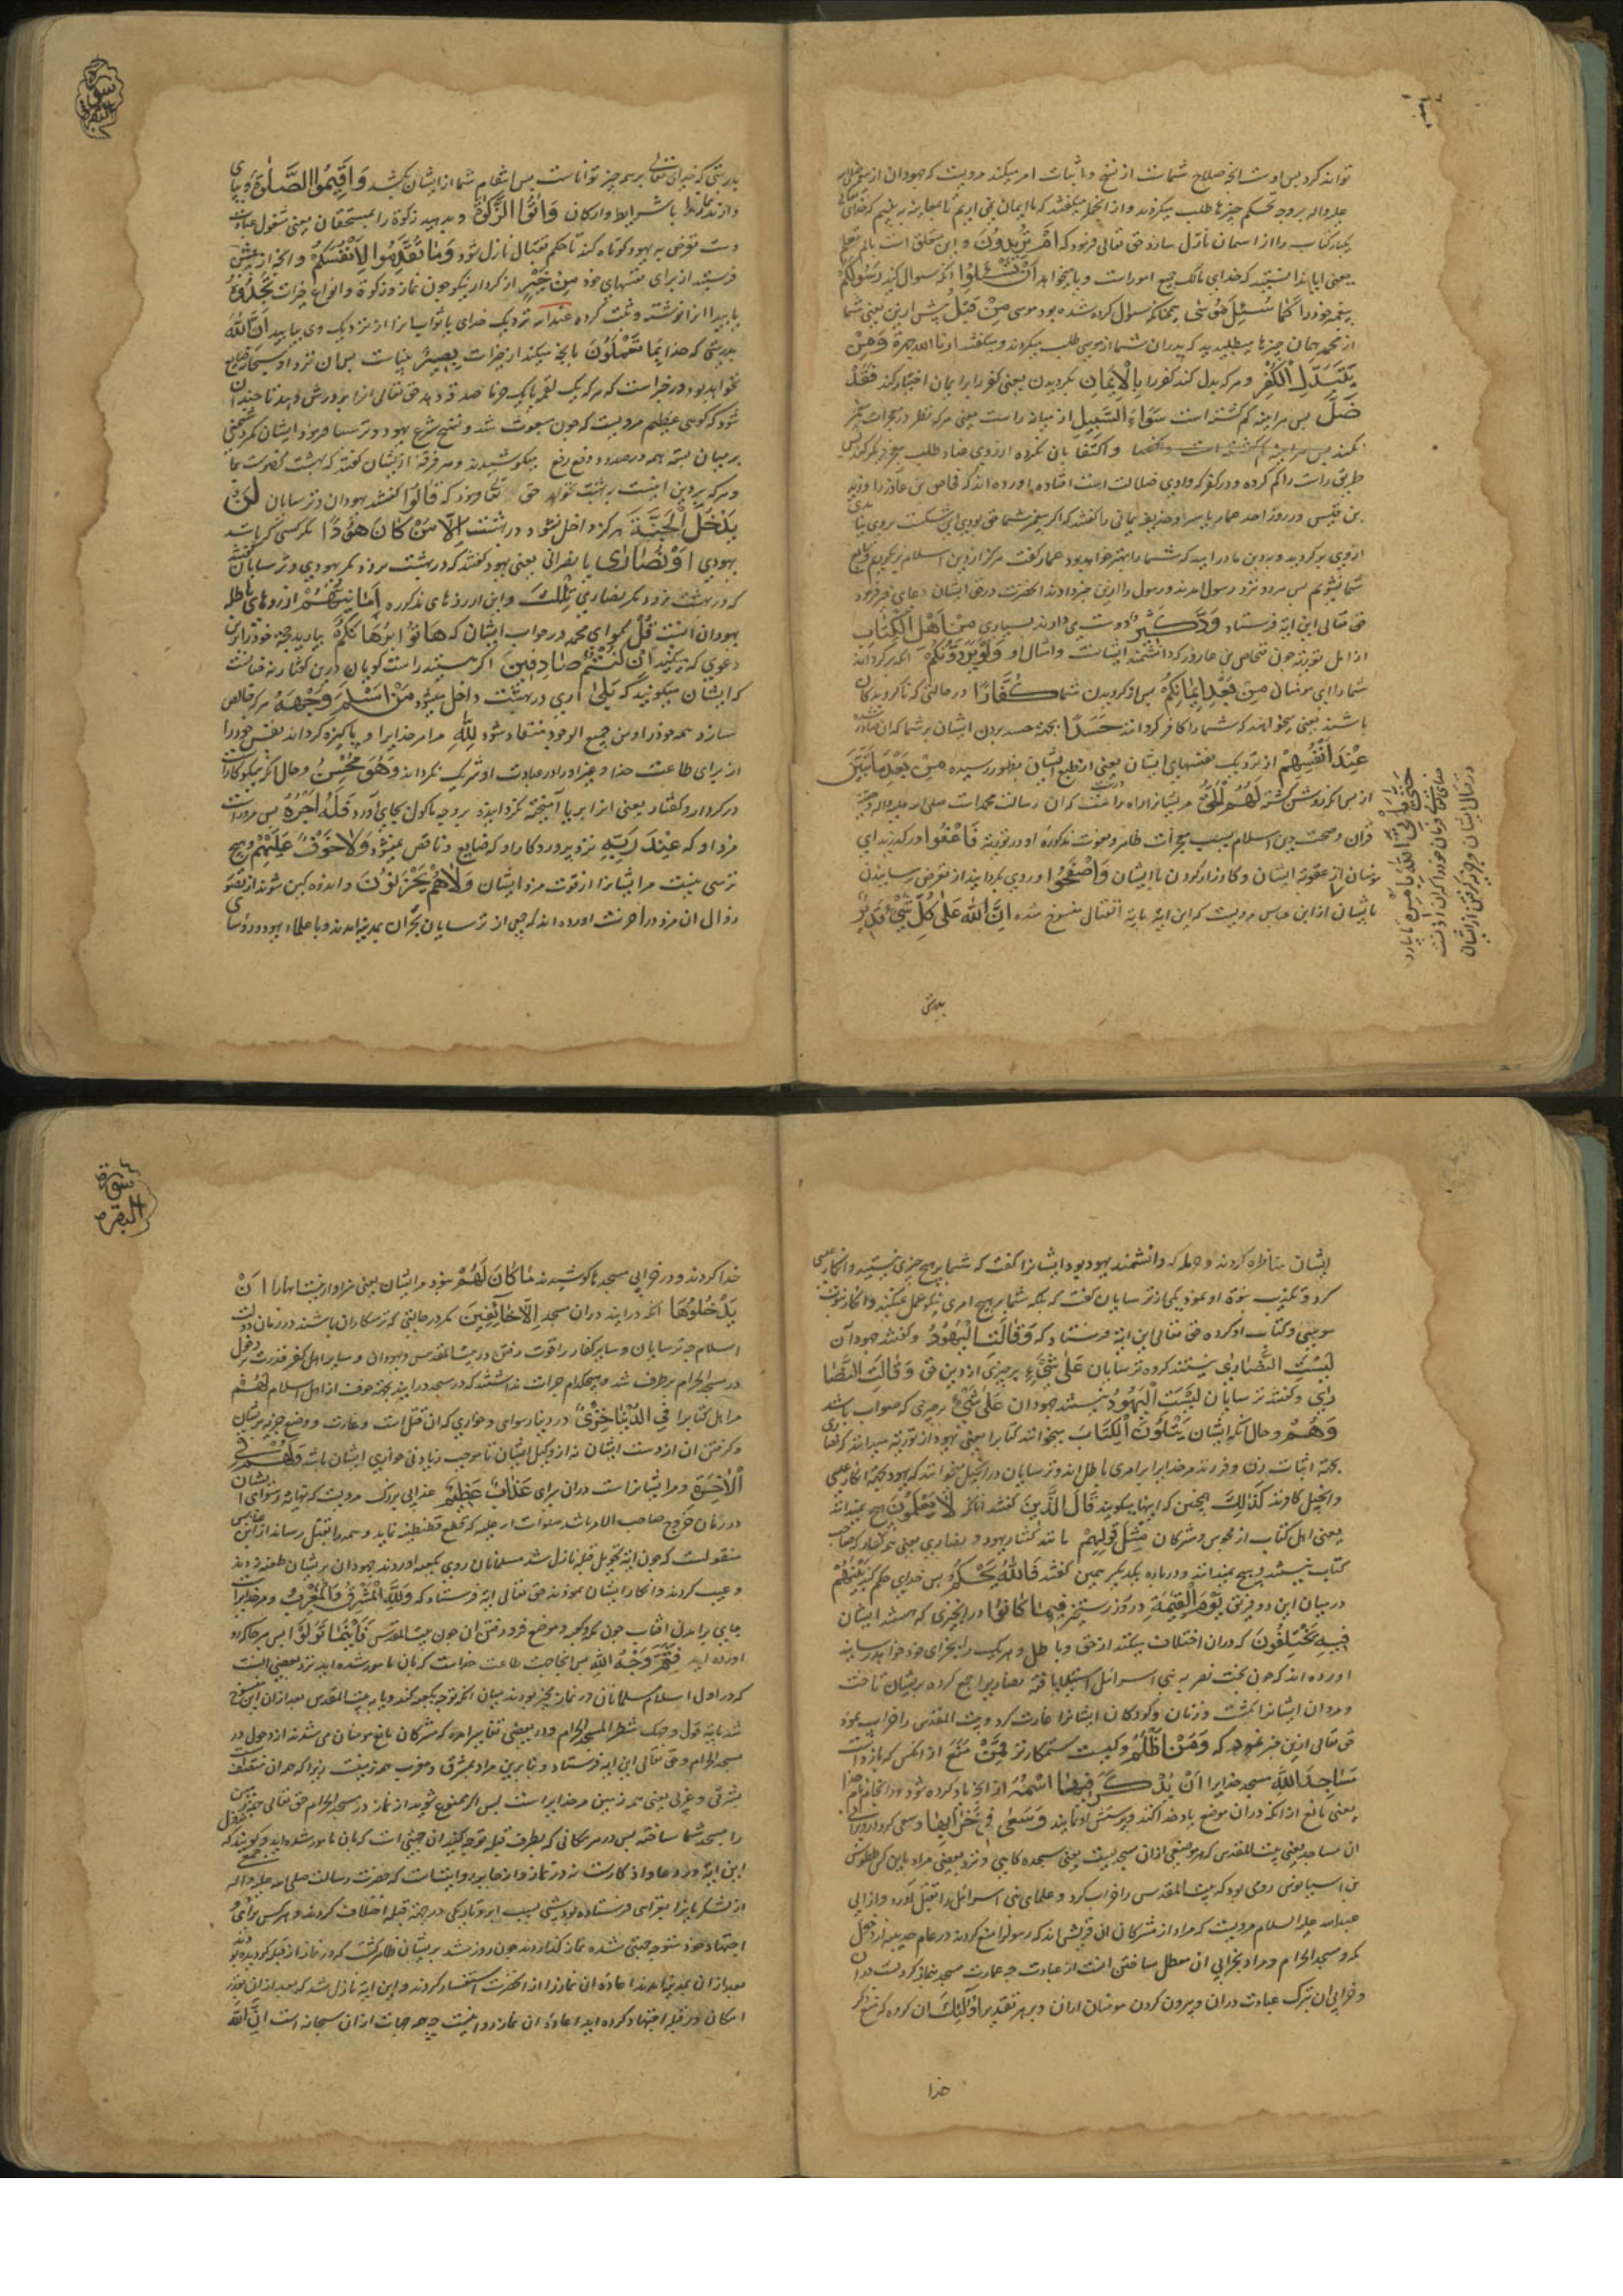 تواند کرد پس اوست انچه صلاح شماست از نسخ و اثبات امر میکند مرویست که جهودان از
علیه واله بر وجه تحکم چیزها طلب میکردند و از انجمله میکفتند که ما ایمان نمی اریم تا معاینه نه بینیم که
یکبار کتاب را از اسمان نازل سازد حق تعالی فرمود که اَمْ تُرِیدُونَ و این متعلق است بالم تعلم
یعنی ایا ندانستید که خدای مالک جمیع امورات و یا میخواهید اَنْ تَسْئَلُوا انکه سوال کنید رَسُولَکُمْ
پیغمبر خود را کَمَا سُئِلَ مُوسَی همچنانکه سوال کرده شده بود موسی مِنْ قَبْلُ پیش ازین یعنی شما
از محمد همان چیزها میطلبید که پدران شما از موسی طلب میکردند و میکفتند ارنا الله جهرة وَمَنْ
یَتَبَدَّلِ الْکُفْرَ و هر که بدل کند کفر را بِالْاِیمَانِ بکرویدن یعنی کفر را بر ایمان اختیار کند فَقَدْ
ضَلَّ پس هراینه کم کشته است سَوَاءَ السَّبِیلِ از میانه راست یعنی هر که نظر در معجزات
نکند و اکتفا بان نکرده از روی عناد طلب معجزه دیکر کند
طریق راست را کم کرده و در کفر که وادی ضلالت است افتاده اورده اند که فخاص بن عازورا و زید
بن قیس در روز احد عمار یاسر و حذیفه یمانی را کفتند که اکر پیغمبر شما حق بودی این شکست بروی
از وی بر کردید و بدین ما درایید که شما را بهتر خواهد بود عمار کفت هرکز از دین اسلام بر نکردیم و تابع
شما نشویم پس هر دو نزد رسول امدند و رسول را ازین خبر دادند انحضرت در حق ایشان دعای خیر فرمود
حق تعالی این ایه فرستاد وَدَّ کَثِیرٌ دوست می دارند بسیاری مِنْ اَهْلِ الْکِتَابِ
از اهل توریة چون فخاص بن عازورا که دانشمند ایشانست و امثال او لَوْ یَرُدُّونَکُمْ انکه بر کردانند
شما را ای مومنان مِنْ بَعْدِ اِیمَانِکُمْ پس از کرویدن شما کُفَّارًا در حالتی که ناکرویدکان
باشند یعنی میخواهند که شما را کافر کردانند حَسَدًا بجهة حسد بردن ایشان بر شما که ان صادر شده
عِنْدِ اَنْفُسِهِمْ از نزدیک نفسهای ایشان یعنی از طبع ایشان بظهور رسیده مِنْ بَعْدِ مَا تَبَیَّنَ
از پس انکه روشن کشته لَهُمُ الْحَقُّ مر ایشانرا راه راست که ان رسالت محمدست صلی الله علیه واله
قران و صحت دین اسلام بسبب معجزات ظاهر و نعوت مذکوره او در توریة فَاعْفُوا درکذرید ای
مومنان از عقوبة ایشان و کارزار کردن با ایشان وَاصْفَحُوا و روی بکردانید از تعرض رسانیدن
بایشان از ابن عباس مرویست که این ایه بایة القتال منسوخ شده اِنَّ اللهَ عَلَی کُلِّ شَیْءٍ قَدِیرٌ
حَتَّی یَاْتِیَ اللهُ بِاَمْرِهِ تا بیارد
خدای تعالی فرمان خود را که ان اذنست
در قتال ایشان و جزیه کرفتن از ایشان
بدرستی
سورة البقرة
بدرستی که خدای تعالی بر همه چیز تواناست پس انتقام شما از ایشان بکشد وَاَقِیمُوا الصَّلٰوةَ و بپای
دارید نماز را با شرایط و ارکان وَاٰتُوا الزَّکٰوةَ و بدهید زکوة را بمستحقان یعنی مشغول عبادت
دست تعرض به یهود کوتاه کنید تا حکم بقتال نازل شود وَمَا تُقَدِّمُوا لِاَنْفُسِکُمْ و انچه از پیش
فرستید از برای نفسهای خود مِنْ خَیْرٍ از کردار نیکو چون نماز و زکوة و انواع خیرات تَجِدُوهُ
بیابید انرا نوشته و ثبت کرده عِنْدَ اللهِ نزدیک خدای یا ثواب انرا از نزدیک وی بیابید اِنَّ اللهَ
بدرستی که خدا بِمَا تَعْمَلُونَ بانچه میکنید از خیرات بَصِیرٌ بیناست پس ان نزد او سبحانه ضایع
نخواهد بود و در خبر است که هر که یک لقمه یا یک خرما صدقه دهد حق تعالی انرا پرورش دهد تا چندان
شود که کوهی عظیم مرویست که چون مبعوث شد و نسخ شرع یهود و ترسا فرمود ایشان کمر دشمنی
بر میان بسته همه در صدد دفع میکوشیدند و هر فرقه از ایشان کفتند که بهشت مخصوص بما
و هر که بر دین ماست به بهشت نخواهد حق تعالی فرمود که قَالُوا کفتند یهودان و ترسایان لَنْ
یَدْخُلَ الْجَنَّةَ هرکز داخل نشود در بهشت اِلَّا مَنْ کَانَ هُودًا مکر کسی که باشد
یهودی اَوْ نَصَارَی یا نصرانی یعنی یهود کفتند که در بهشت نرود مکر یهودی و ترسایان کفتند
که در بهشت نرود مکر نصاری تِلْکَ و این ارزوهای مذکوره اَمَانِیُّهُمْ ارزوهای باطله
یهودان است قُلْ بکو ای محمد در جواب ایشان که هَاتُوا بُرْهَانَکُمْ بیارید حجة خود را برین
دعوی که میکنید اِنْ کُنْتُمْ صَادِقِینَ اکر هستید راست کویان درین کفتار نه چنانست
که ایشان میکویند که بَلَی اری در بهشت داخل میشود مَنْ اَسْلَمَ وَجْهَهُ هر که خالص
سازد همه خود را و من جمیع الوجوه منقاد شود لِلّٰهِ مر خدایرا و پاکیزه کرداند نفس خود را
از برای طاعت خدا و غیر او را در عبادت او شریک نکرداند وَهُوَ مُحْسِنٌ و حال انکه نیکوکار است
در کردار و کفتار یعنی انرا بریا امیخته نکرداند و بر وجه مامور بجای اورد فَلَهُ اَجْرُهُ پس مر اوراست
مزد او که عِنْدَ رَبِّهِ نزد پروردکار او که ضایع و ناقص نمیشود وَلَا خَوْفٌ عَلَیْهِمْ و هیچ
ترسی نیست مر ایشانرا از فوت مزد ایشان وَلَا هُمْ یَحْزَنُونَ و اندوهکین نشوند از تصور
زوال ان مزد در اخرت اورده اند که جمعی از ترسایان نجران بمدینه امدند و با علماء یهود و رؤسای
ایشان مناظره کردند و حرمله که دانشمند یهود بود ایشانرا کفت که شما بر هیچ چیزی نیستید و انکار عیسی
کرد و تکذیب نبوة او نمود یکی از ترسایان کفت که بلکه شما بر هیچ امری نیکو عمل نمیکنید و انکار نبوت
موسی و کتاب او کرده حق تعالی این ایة فرستاد که وَقَالَتِ الْیَهُودُ و کفتند جهودان
لَیْسَتِ النَّصَارَی نیستند کروه ترسایان عَلَی شَیْءٍ بر چیزی از دین حق وَقَالَتِ النَّصَا
رَی و کفتند ترسایان لَیْسَتِ الْیَهُودُ نیستند جهودان عَلَی شَیْءٍ بر چیزی که صواب باشد
وَهُمْ و حال انکه ایشان یَتْلُونَ الْکِتَابَ میخوانند کتابرا یعنی یهود از توریة میدانند که نصاری
بجهة اثبات زن و فرزند مر خدایرا بر امری باطل اند و ترسایان در انجیل میخوانند که یهود بجهة انکار عیسی
و انجیل کافرند کَذٰلِکَ همچنین که اینها میکویند قَالَ الَّذِینَ کفتند انانکه لَا یَعْلَمُونَ هیچ نمیدانند
یعنی اهل کتاب از مجوس و مشرکان مِثْلَ قَوْلِهِمْ مانند کفتار یهود و نصاری یعنی هر کفار که صاحب
کتاب نیستند و هیچ نمیدانند در باره یکدیکر همین کفتند فَاللهُ یَحْکُمُ پس خدای حکم کند بَیْنَهُمْ
در میان این دو فریق یَوْمَ الْقِیٰمَةِ در روز رستخیز فِیمَا کَانُوا در انچیزی که هستند ایشان
فِیهِ یَخْتَلِفُونَ که در ان اختلاف میکنند از حق و باطل و هر یک را بجزای خود خواهد رسانید
اورده اند که چون بخت نصر به بنی اسرائیل استیلا یافته نصاری را جمع کرده بر ایشان تاخت
و مردان ایشانرا بکشت و زنان و کودکان ایشانرا غارت کرد و بیت المقدس را خراب نمود
حق تعالی ازین خبر نمود که وَمَنْ اَظْلَمُ و کیست ستمکارتر مِمَّنْ مَنَعَ از انکس که بازداشت
مَسَاجِدَ اللهِ مسجد خدایرا اَنْ یُذْکَرَ فِیهَا اسْمُهُ از انکه یاد کرده شود در انجا نام خدا
یعنی مانع از انکه در ان موضع یاد خدا کنند و پرستش او نمایند وَسَعَی فِی خَرَابِهَا و سعی کرد در ویرانی
ان مساجد یعنی بیت المقدس که هر موضعی از ان مسجدیست یعنی سجده کاهی و نزد بعضی مراد باین کس طیطوس
بن اسپیانوس رومی بود که بیت المقدس را خراب کرد و علمای بنی اسرائیل را بقتل آورد و از ابی
عبدالله علیه السلام مرویست که مراد از مشرکان ان قریش اند که رسول را منع کردند در عام حدیبیه از دخول
مکه و مسجد الحرام و مراد بخرابی ان معطل ساختن انست از عبادت چه عمارت مسجد بنماز کردنست در ان
و خرابی ان بترک عبادت در ان و بیرون کردن مومنان از ان و بر هر تقدیر اُولٰئِکَ ان کروه که منع ذکر
خدا
سورة البقرة
خدا کردند و در خرابی مسجدها کوشیدند مَا کَانَ لَهُمْ نبود مر ایشان یعنی سزاوار نیست انها را اَنْ
یَدْخُلُوهَا انکه درایند در ان مسجد اِلَّا خَائِفِینَ مکر در حالتی که ترسکاران باشند در زمان دولت
اسلام چه ترسایان و سایر کفار را قوت رفتن در بیت المقدس و یهودان و سایر اهل کفر قدرت دخول
در مسجد الحرام برطرف شد و هیچکدام جرات نداشتند که در مسجد درایند بجهة خوف از اهل اسلام لَهُمْ
مر اهل کتابرا فِی الدُّنْیَا خِزْیٌ در دنیا رسوای و خواری که ان قتل است و غارت و وضع جزیه بر ایشان
و کرفتن ان از دست ایشان نه از وکیل ایشان تا موجب زیادتی خواری ایشان باشد وَلَهُمْ فِی
الْاٰخِرَةِ و مر ایشانراست در ان سرای عَذَابٌ عَظِیمٌ عذابی بزرک مرویست که نهایة رسوای ایشان
در زمان خروج صاحب الامر باشد صلوات الله علیه که فتح قسطنطنیه نماید و همه را بقتل رساند از ابن عباس
منقولست که چون ایة تحویل قبله نازل شد مسلمانان روی بکعبه اوردند جهودان بر ایشان طعنه زدند
و عیب کردند و انکار ایشان نمودند حق تعالی ایة فرستاد که وَلِلّٰهِ الْمَشْرِقُ وَالْمَغْرِبُ و مر خدایراست
جای برامدن افتاب چون مکه و کعبه و موضع فرو رفتن ان چون بیت المقدس فَاَیْنَمَا تُوَلُّوا پس هر جا که رو
اورده اید فَثَمَّ وَجْهُ اللهِ پس انجا جهت طاعت خداست که بان مامور شده اید نزد بعضی انست
که در اول اسلام مسلمانان در نماز مخیر بودند میان انکه توجه بکعبه کنند و یا به بیت المقدس بعد از ان این منسوخ
شد بایة فول وجهک شطر المسجد الحرام و در بعضی تفاسیر امده که مشرکان مانع مومنان می شدند از دخول در
مسجد الحرام و حق تعالی این ایه فرستاد و بنابرین مراد بمشرق و مغرب همه زمینست زیرا که همه ان منقسمست
بشرقی و غربی یعنی همه زمین مر خدایراست پس اکر ممنوع شوید از نماز در مسجد الحرام حق تعالی جمیع زمین
را مسجد شما ساخته پس در هر مکانی که بطرف قبله توجه کنید ان جهتی است که بان مامور شده اید و کویند که
این ایة در دعا و اذکارست نه در نماز و از جابر روایتست که حضرت رسالت صلی الله علیه واله
از لشکر بانرا بغزای فرستاده بود شبی بسبب ابر و تاریکی در جهة قبله اختلاف کردند و هر کس برای و
اجتهاد خود متوجه جهتی شده نماز کذاردند چون روز شد بر ایشان ظاهر کشت که در نماز از قبله کردیده بودند
بعد از ان بمدینه امدند اعاده ان نماز را از انحضرت استفسار کردند و این ایة نازل شد که بعد از ان
امکان در قبله اجتهاد کرده اید اعادهٔ ان نماز روا نیست چه همه جهات از ان سبحانه است اِنَّ اللهَ